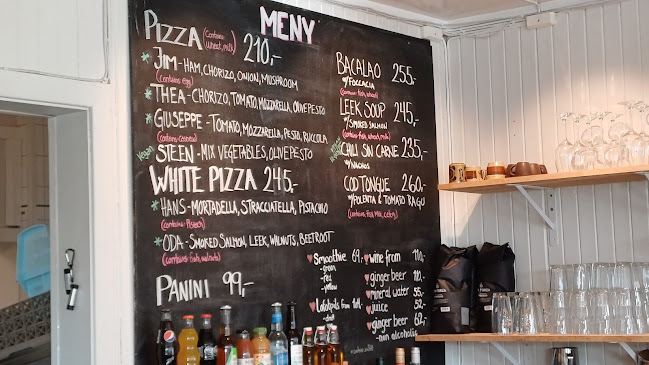 MENY
PIZZA (contains wheat, milk) 210,-
* JIM - HAM, CHORIZO, ONION, MUSHROOM
(contains egg)
* THEA - CHORIZO, TOMATO, MOZZARELLA, OLIVE PESTO
* GIUSEPPE - TOMATO, MOZZARELLA, PESTO, RUCCOLA
(contains cashew)
Vegan STEEN - MIX VEGETABLES, OLIVE PESTO
WHITE PIZZA 245,-
* HANS - MORTADELLA, STRACCIATELLA, PISTACHIO
(contains: Pistach)
* ODA - SMOKED SALMON, LEEK, WALNUTS, BEETROOT
(contains: fish, walnuts)
PANINI 99,-
BACALAO 255,-
W/FOCCACIA
(contains: fish, wheat)
LEEK SOUP 245,-
W/SMOKED SALMON
(contains: fish, wheat, milk)
Vegan CHILI SIN CARNE 235,-
W/NACHOS
COD TONGUE 260,-
W/POLENTA & TOMATO RAGU
(contains: Fish, Milk, celery)
Smoothie 69,-
- green
- red
- yellow
wine from 110,-
ginger beer
mineral water 55,-
juice 52,-
ginger beer 62,-
- non alcoholic